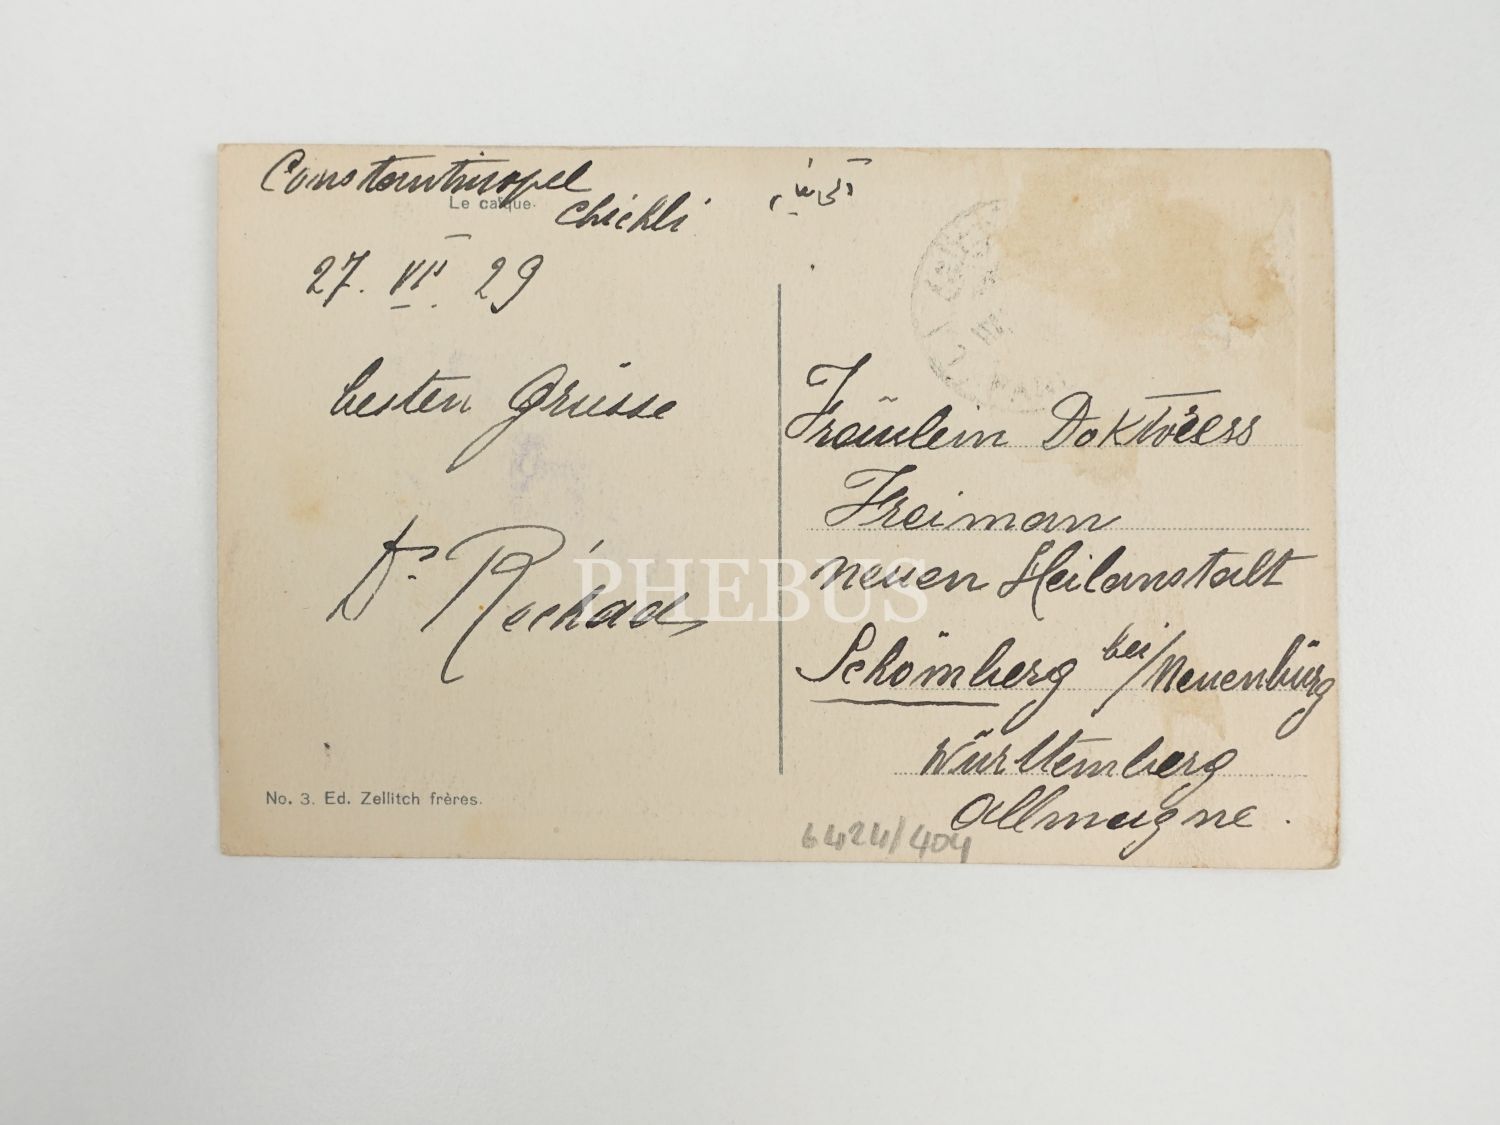 Constantinopel
Le caïque.
Chichli
27. VII. 29
besten Grüsse
Dr. Rechad
No. 3. Ed. Zellitch frères.
Fräulein Doktoress
Freiman
neuen Heilanstalt
Schömberg bei/Neuenbürg
Württemberg
Allmagne.
6424/404
PHEBUS